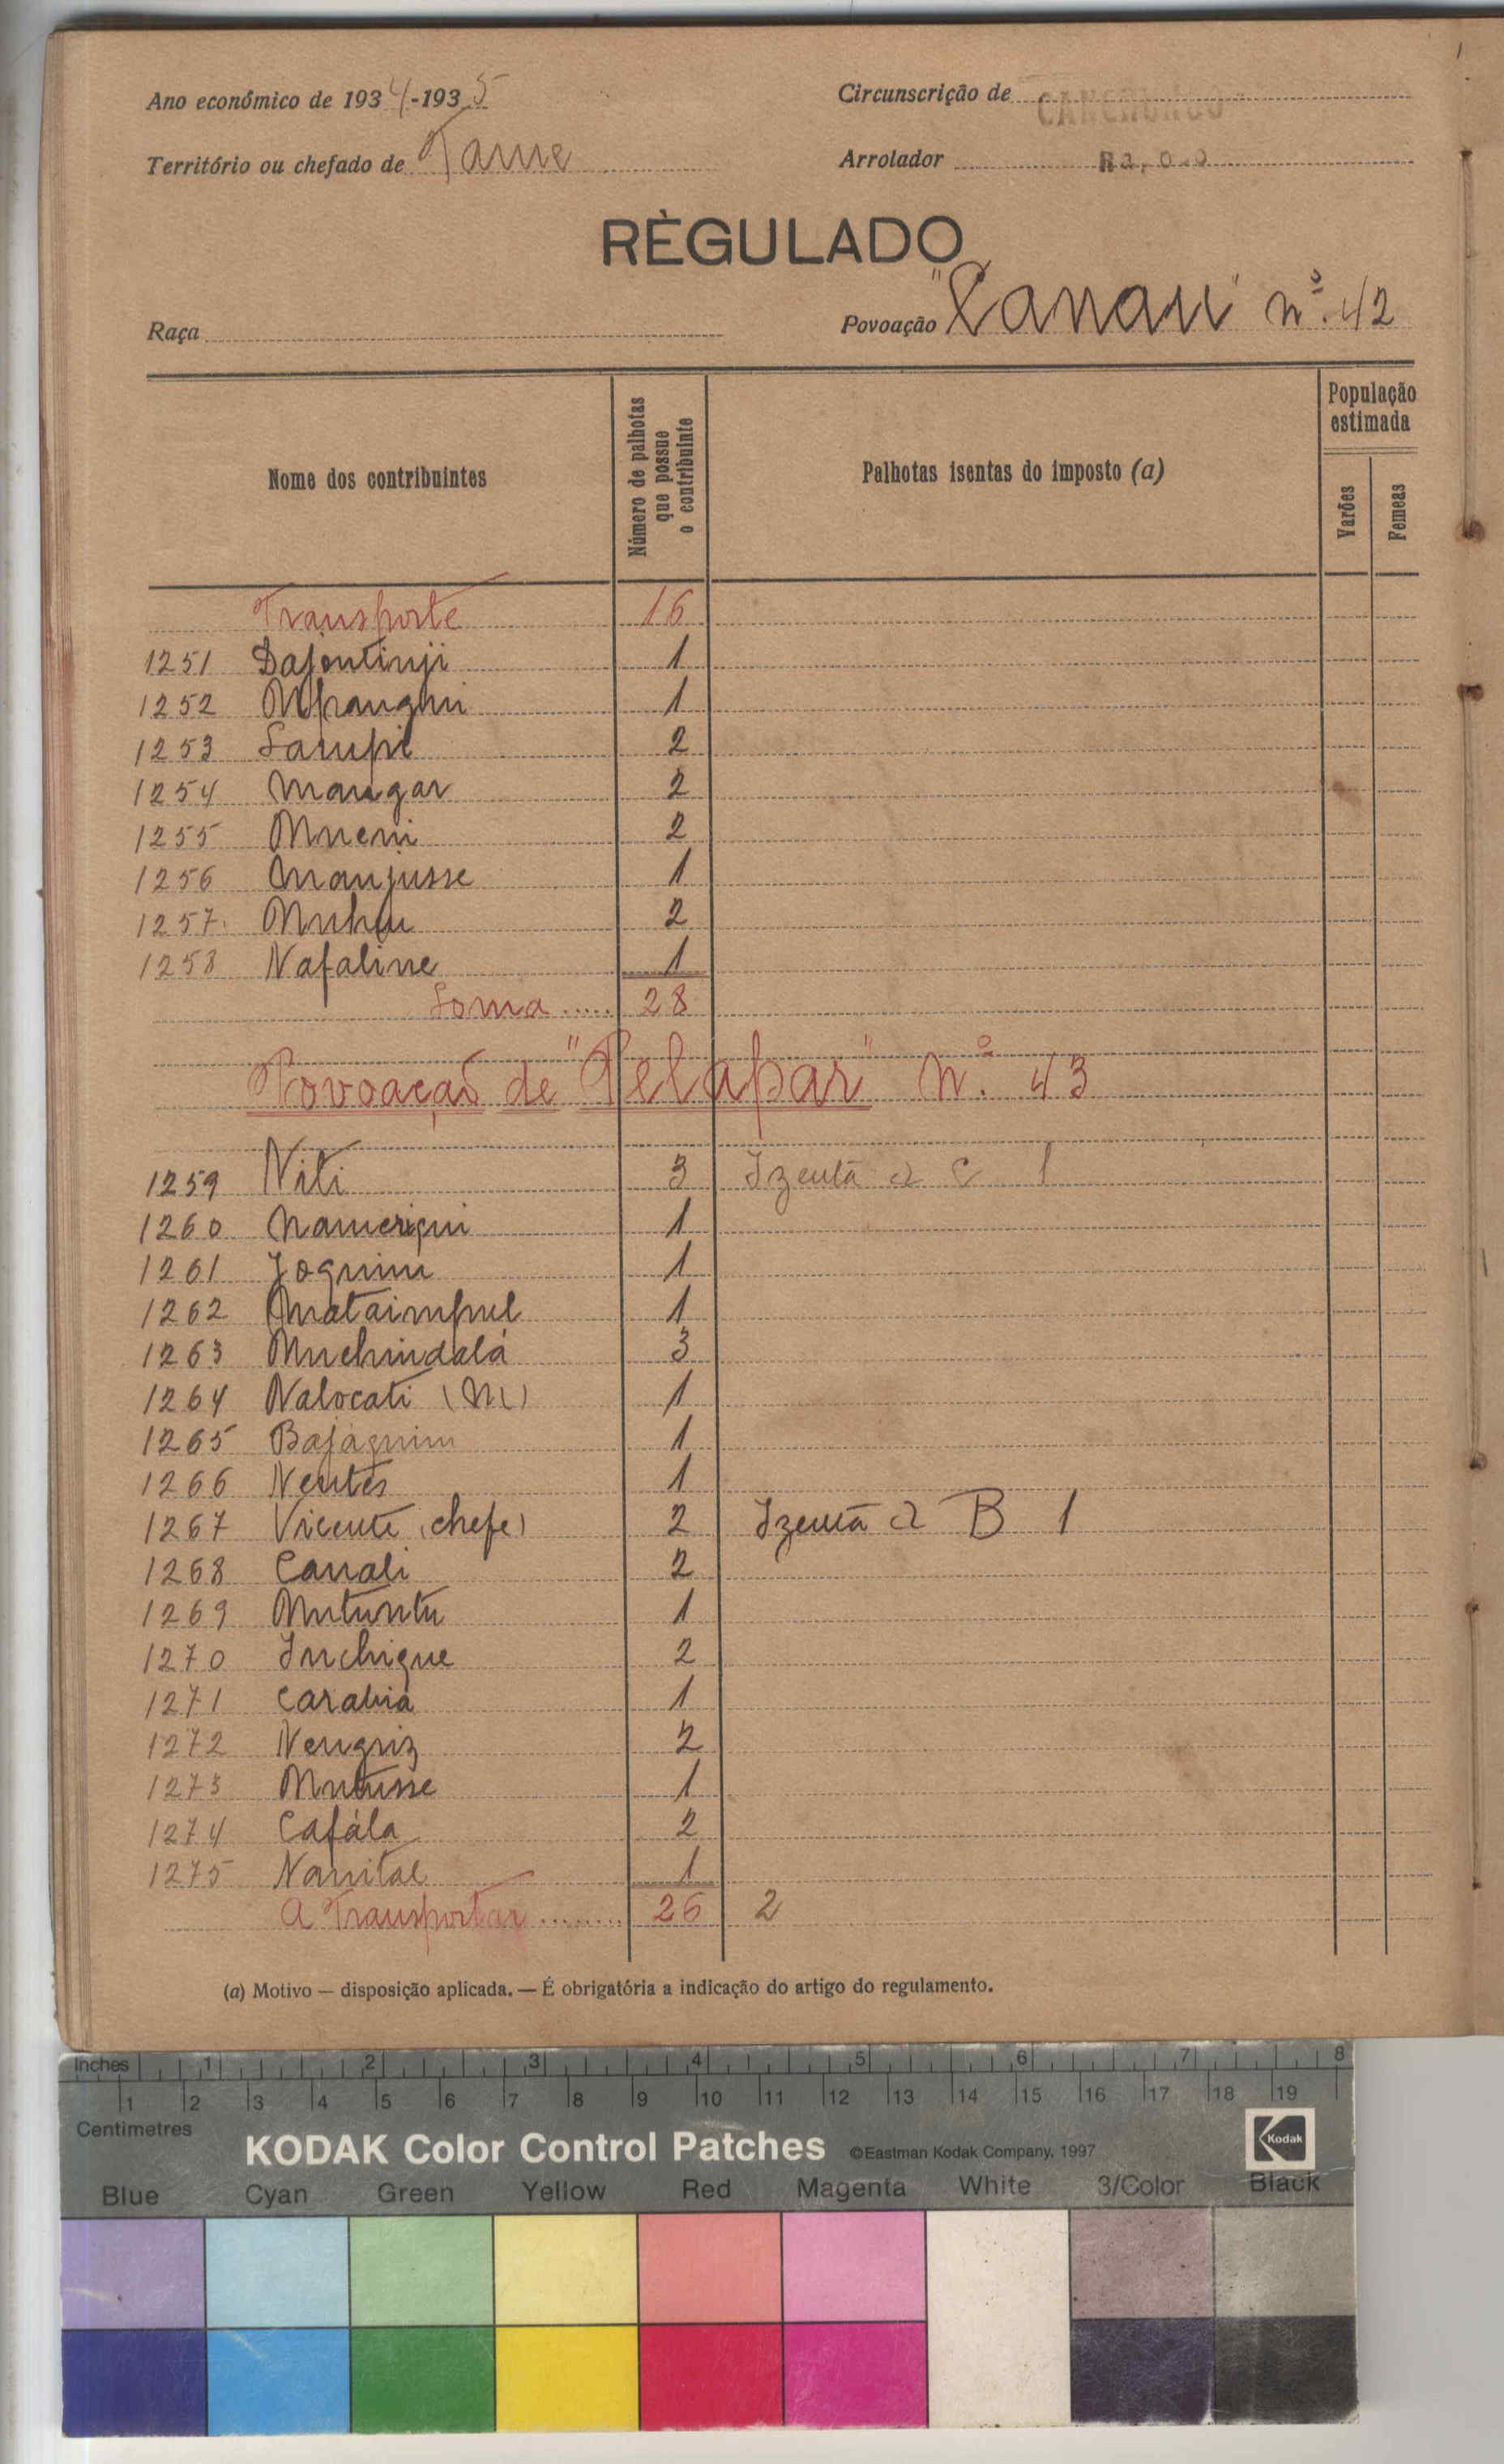 Ano económico de 1934-1935
Circunscrição de CANCHUNGO
Território ou chefado de Tame
Arrolador
RÈGULADO
Raça
Povoação "Canau" nº. 42
Nome dos contribuintes
Número de palhotas que possue o contribuinte
Palhotas isentas do imposto (a)
População estimada
Varões
Femeas
Transporte 16
1251 Dajontinji 1
1252 1
1253 Saupil 2
1254 Mangar 2
1255 Mneni 2
1256 Manjusse 1
1257 2
1258 Nafaline 1
Soma ..... 28
Povoação de "Pelapar" Nº. 43
1259 Niti 3 Izenta a C 1
1260 1
1261 Joquim 1
1262 1
1263 Muchindalá 3
1264 Nalocati (M) 1
1265 Bajáquim 1
1266 Nentes 1
1267 Vicente (chefe) 2 Izenta a B 1
1268 Canali 2
1269 Mutuntu 1
1270 Inchique 2
1271 Carabiá 1
1272 Nenguiz 2
1273 Mutusse 1
1274 Cafála 2
1275 Nanital 1
A Transportar ........ 26 2
(a) Motivo — disposição aplicada. — É obrigatória a indicação do artigo do regulamento.
Inches 1 2 3 4 5 6 7 8
1 2 3 4 5 6 7 8 9 10 11 12 13 14 15 16 17 18 19
Centimetres
KODAK Color Control Patches ©Eastman Kodak Company, 1997 Kodak
Blue Cyan Green Yellow Red Magenta White 3/Color Black